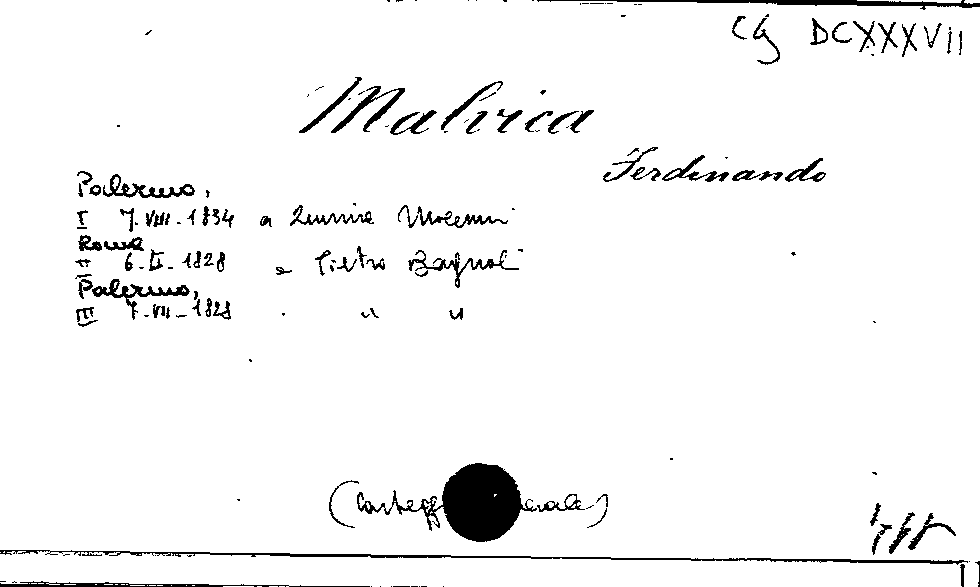 CG DCXXXVII
Malvica
Ferdinando
Palermo,
I 7.VIII.1834 a
Roma
II 6.II.1828 a Pietro Bagnoli
Palermo,
III 7.VII.1828 " "
(Carteggi